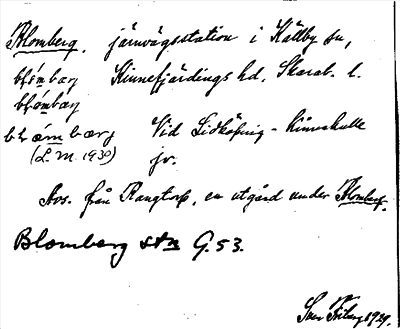 Blomberg, järnvägsstation i Källby sn,
blómbærj Kinnefjärdings hd, Skarab. l.
blómbærj
blómbærj Vid Lidköping - Kinnekulle
(L.M. 1930) jv.
Avs. från Rangtorp, en utgård under Blomberg.
Blomberg stn G.53.
Sven Friberg 1929.